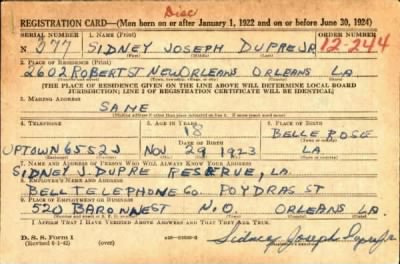 Disc
REGISTRATION CARD—(Men born on or after January 1, 1922 and on or before June 30, 1924)
SERIAL NUMBER 1. NAME (Print) ORDER NUMBER
N 277 SIDNEY JOSEPH DUPRE JR 12-244
2. PLACE OF RESIDENCE (Print)
2602 ROBERT ST NEW ORLEANS ORLEANS LA
[THE PLACE OF RESIDENCE GIVEN ON THE LINE ABOVE WILL DETERMINE LOCAL BOARD
JURISDICTION; LINE 2 OF REGISTRATION CERTIFICATE WILL BE IDENTICAL]
3. MAILING ADDRESS
SAME
4. TELEPHONE 5. AGE IN YEARS 6. PLACE OF BIRTH
18 BELLE ROSE
DATE OF BIRTH
UPTOWN 6552J NOV 29 1923 LA
7. NAME AND ADDRESS OF PERSON WHO WILL ALWAYS KNOW YOUR ADDRESS
SIDNEY J. DUPRE RESERVE, LA.
8. EMPLOYER'S NAME AND ADDRESS
BELL TELEPHONE CO. POYDRAS ST
9. PLACE OF EMPLOYMENT OR BUSINESS
520 BARONNE ST N.O. ORLEANS LA.
I AFFIRM THAT I HAVE VERIFIED ABOVE ANSWERS AND THAT THEY ARE TRUE.
D. S. S. Form 1
(Revised 6-1-42)
Sidney Joseph Dupre Jr